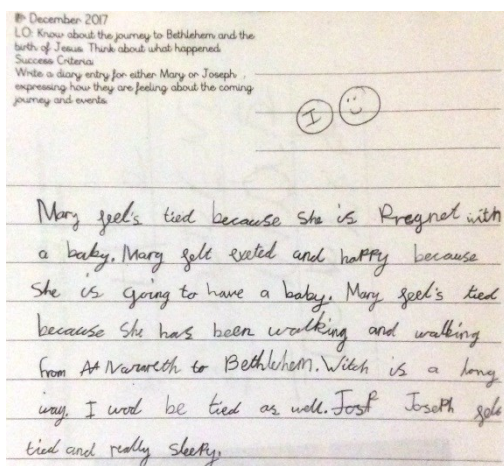 December 2017
LO: Know about the journey to Bethlehem and the
birth of Jesus. Think about what happened.
Success Criteria:
Write a diary entry for either Mary or Joseph,
expressing how they are feeling about the coming
journey and events.
I
Mary feel's tied because she is Pregnet with
a baby. Mary felt exeted and happy because
She is going to have a baby. Mary feel's tied
because She has been walking and walking
from Nazareth to Bethlehem. Witch is a long
way. I wod be tied as well. Josf Joseph felt
tied and really sleepy.